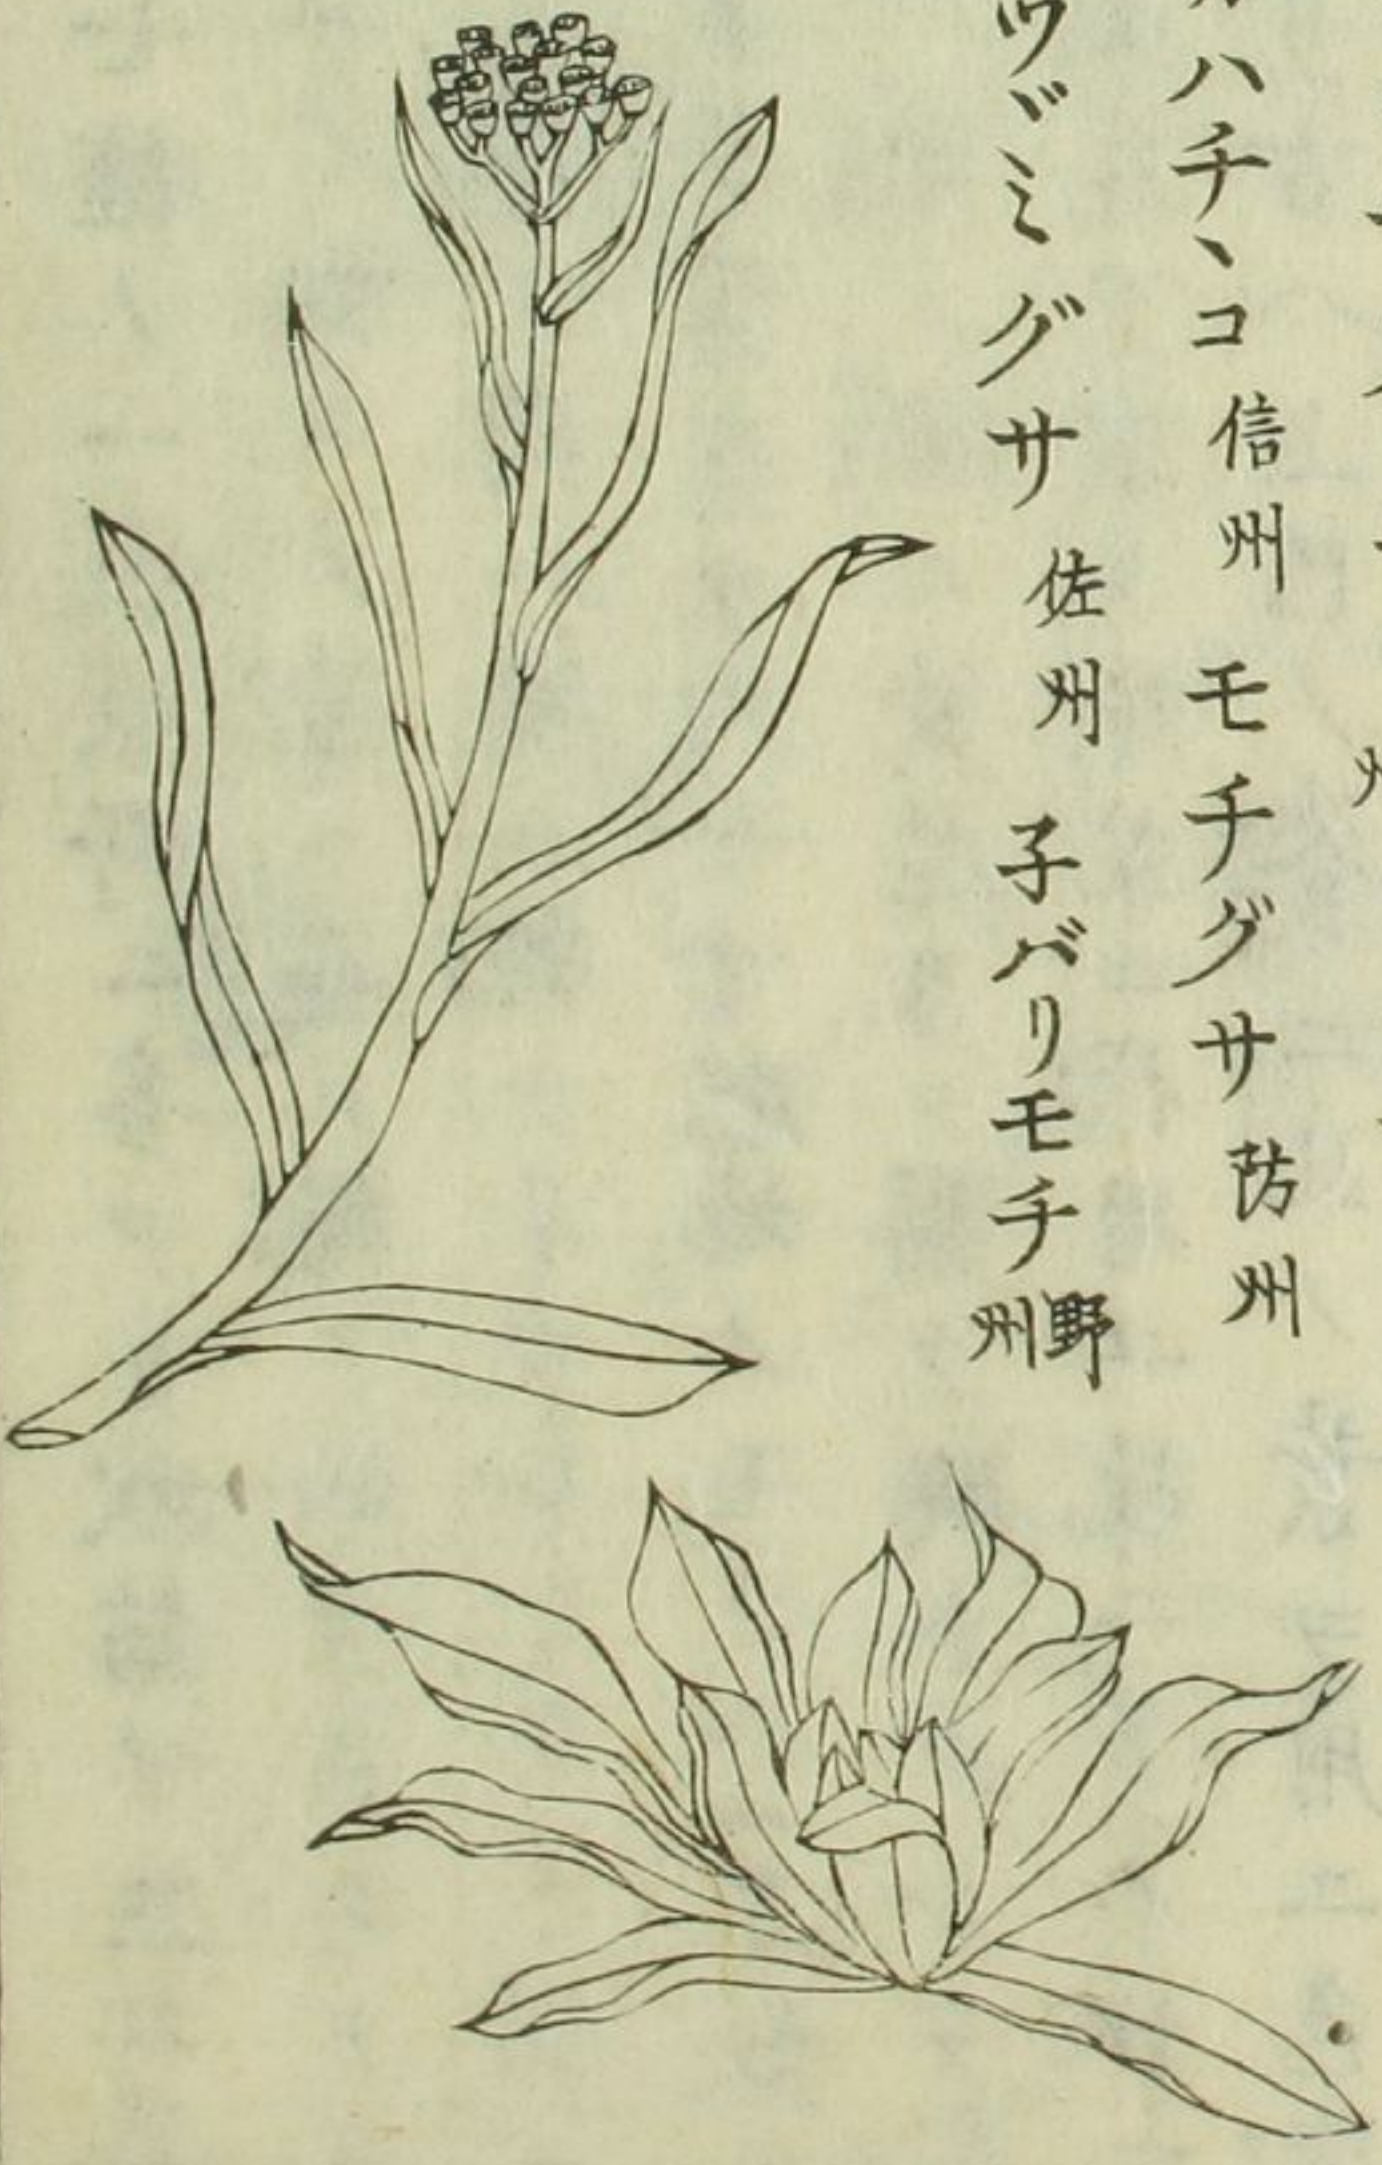 ハチヽコ 信州 モチグサ 防州
ヅミグサ 佐州 子バリモチ 野州